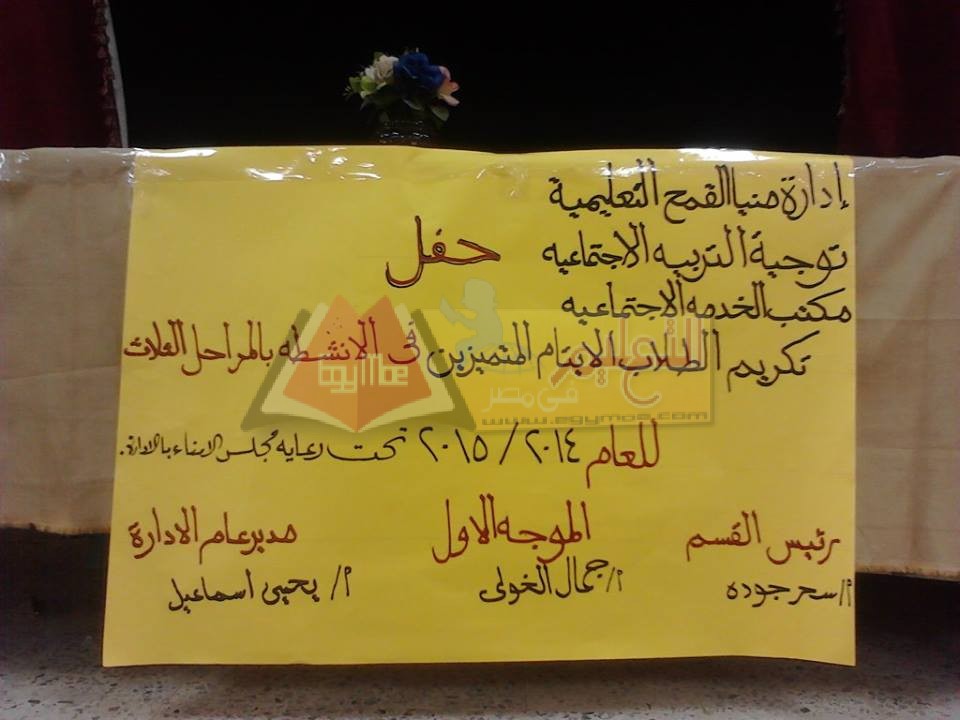 إدارة منيا القمح التعليمية
توجية التربيه الاجتماعيه
حفل
مكتب الخدمه الاجتماعيه
تكريم الطلاب الايتام المتميزين فى الانشطه بالمراحل الثلاث
للعام ٢٠١٤/٢٠١٥ تحت رعايه مجلس الابناء بالادارة.
رئيس القسم
الموجه الاول
مدير عام الادارة
أ/ سحر جوده
أ/ جمال الخولى
أ/ يحيى اسماعيل
التعليم فى مصر
www.egymoe.com